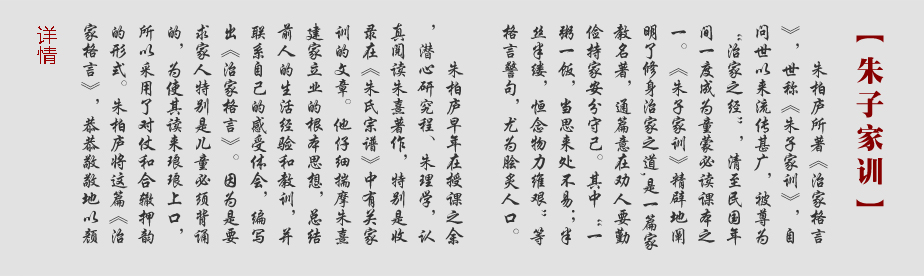 【朱子家训】
朱柏庐所著《治家格言
》，世称《朱子家训》，自
问世以来流传甚广，被尊为
“治家之经”，清至民国年
间一度成为童蒙必读课本之
一。《朱子家训》精辟地阐
明了修身治家之道，是一篇家
教名著，通篇意在劝人要勤
俭持家安分守己。其中“一
粥一饭，当思来处不易；半
丝半缕，恒念物力维艰”等
格言警句，尤为脍炙人口。
朱柏庐早年在授课之余
，潜心研究程、朱理学，认
真阅读朱熹著作，特别是收
录在《朱氏宗谱》中有关家
训的文章。他仔细揣摩朱熹
建家立业的根本思想，总结
前人的生活经验和教训，并
联系自己的感受体会，编写
出《治家格言》。因为是要
求家人特别是儿童必须背诵
的，为使其读来琅琅上口，
所以采用了对仗和合辙押韵
的形式。朱柏庐将这篇《治
家格言》，恭恭敬敬地以颜
详情